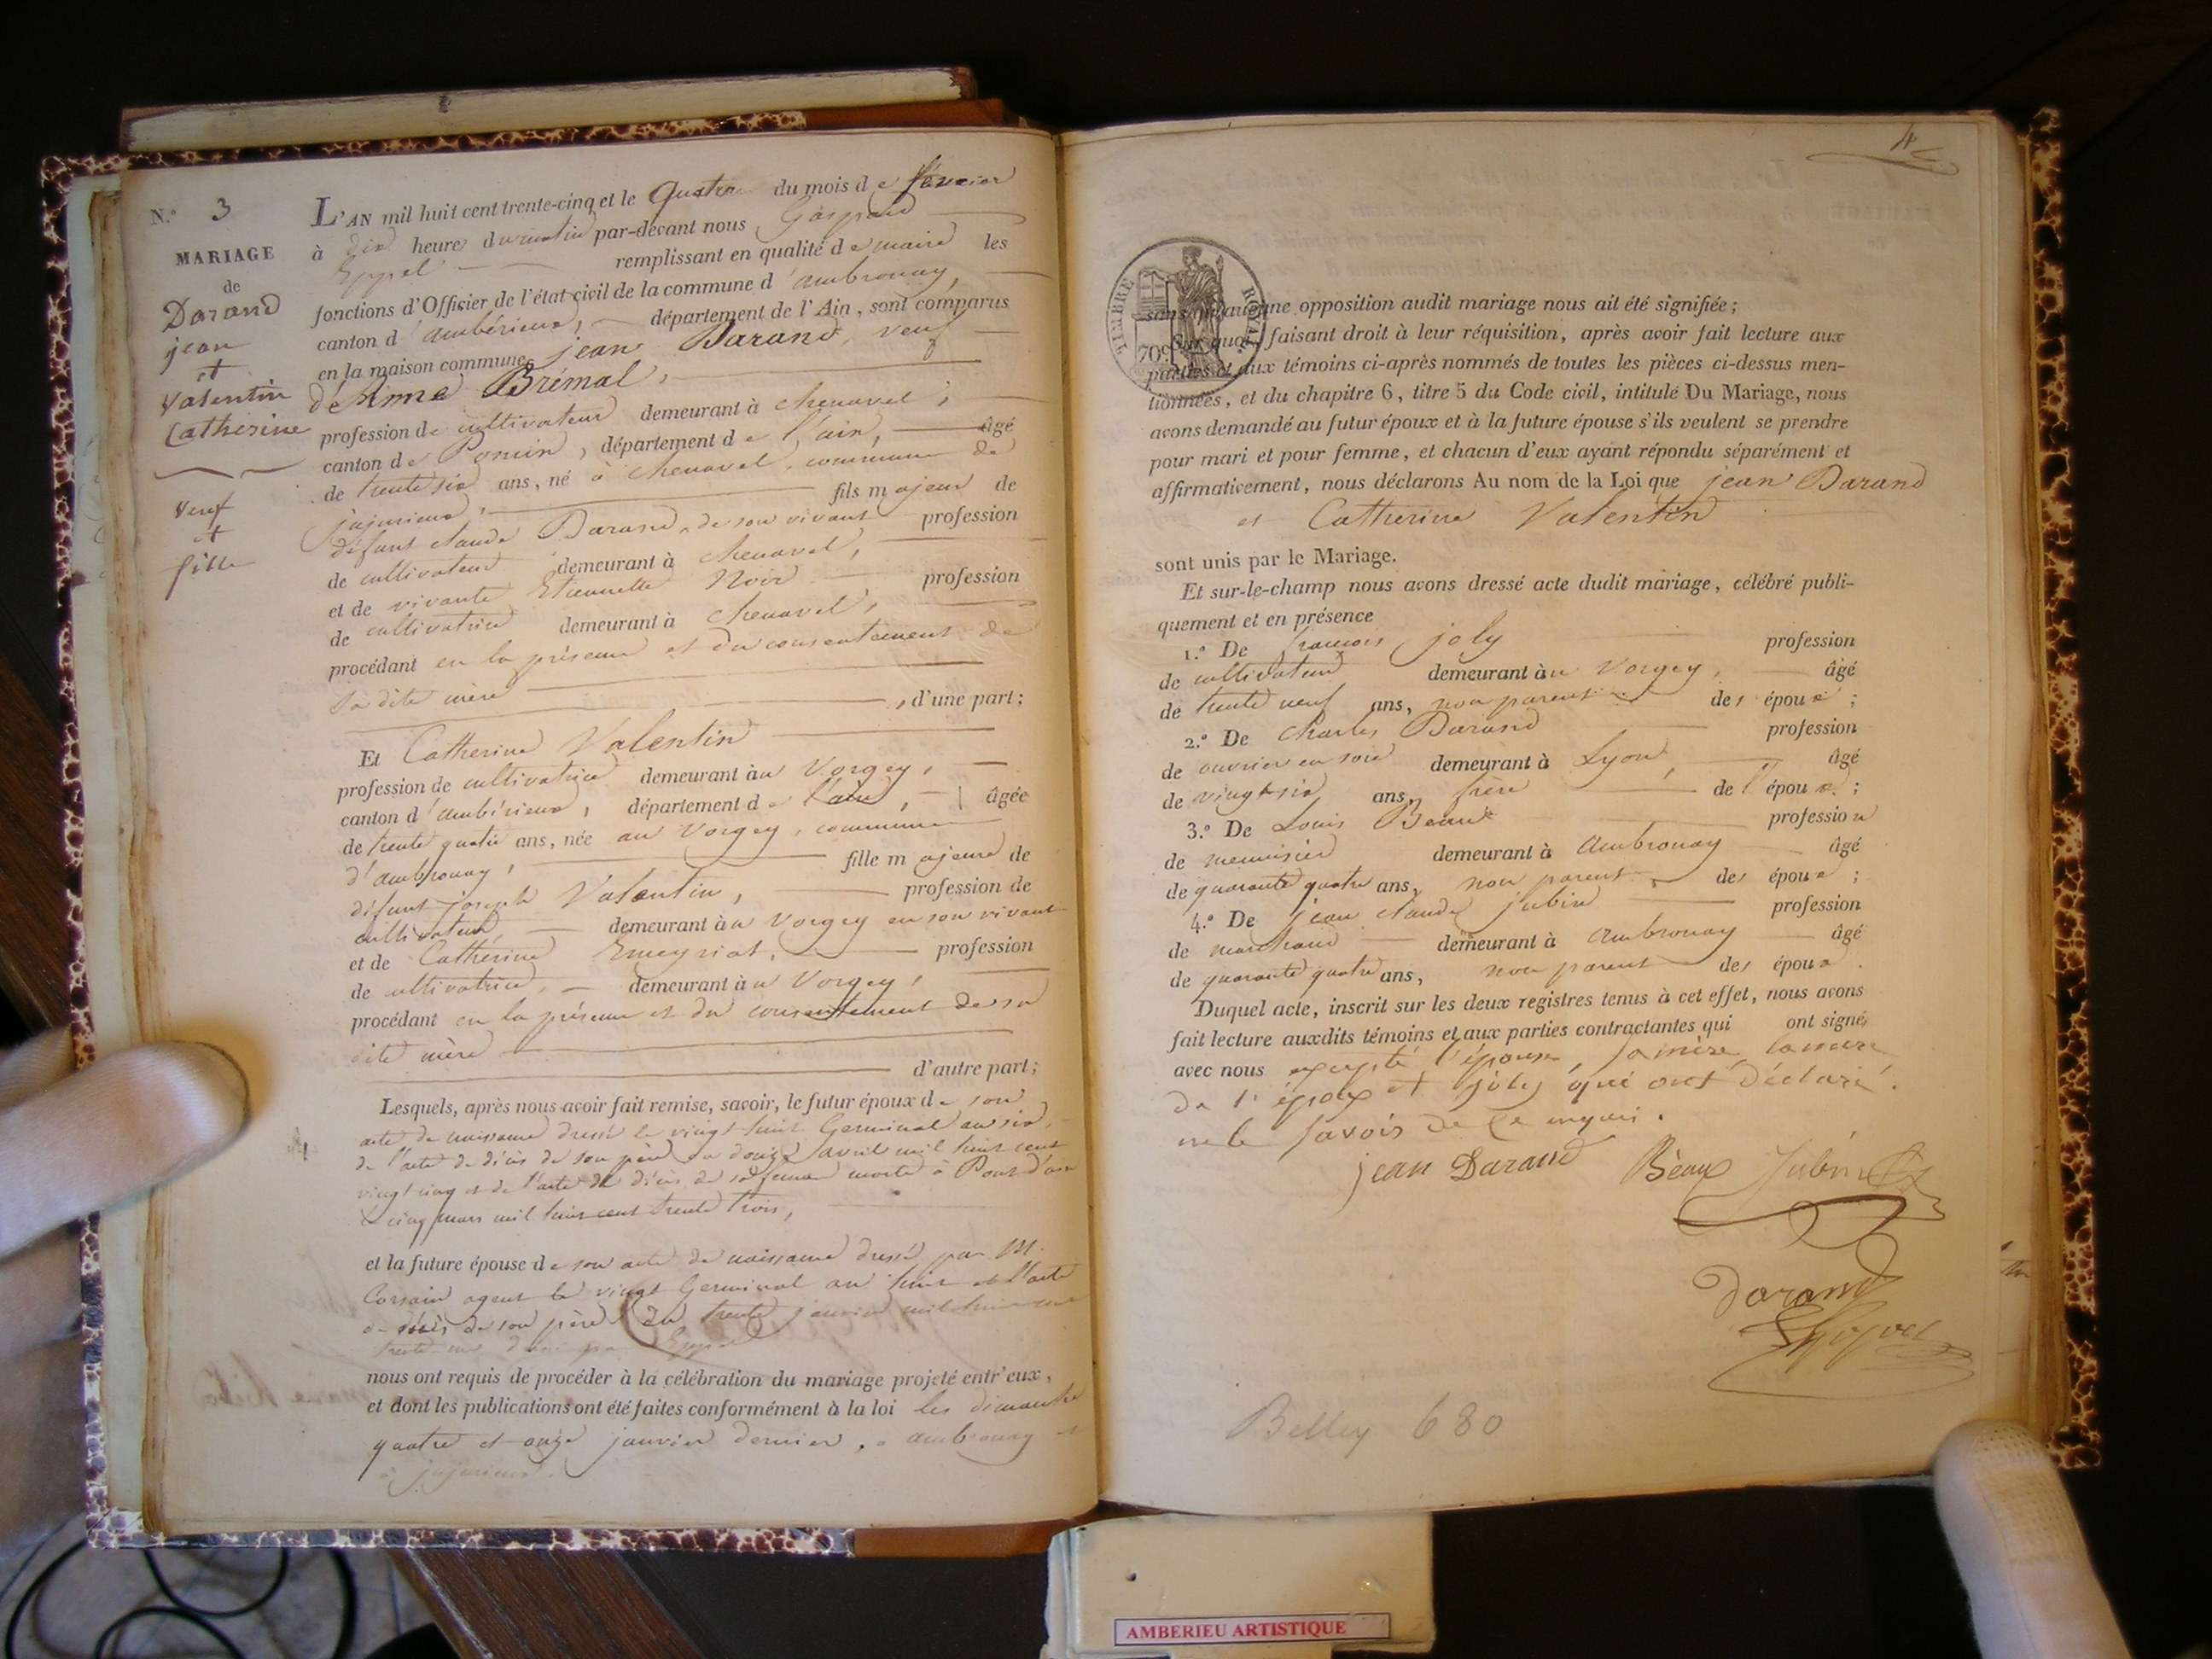 N.° 3
MARIAGE
de
Darand
jean
et
Valentin
Catherine
veuf
et
fille
L'AN mil huit cent trente-cinq et le quatre du mois de février
à dix heures du matin par-devant nous Gaspard
Eppel remplissant en qualité de maire les
fonctions d'Officier de l'état civil de la commune d'ambronay,
canton d'ambérieux, département de l'Ain, sont comparus
en la maison commune jean Darand, veuf
de Anne Brémal,
profession de cultivateur demeurant à chenavel,
canton de Poncin, département de l'ain, âgé
de trente six ans, né à chenavel, commune de
jujurieux, fils majeur de
défunt claude Darand, de son vivant profession
de cultivateur demeurant à chenavel,
et de vivante Etiennette Noir profession
de cultivatrice demeurant à chenavel,
procédant en la présence et du consentement de
sa dite mère , d'une part;
Et Catherine Valentin
profession de cultivatrice demeurant au Vorgey,
canton d'ambérieux, département de l'ain, âgée
de trente quatre ans, née au Vorgey, commune
d'ambronay, fille majeure de
défunt joseph Valentin, profession de
cultivateur, demeurant au Vorgey en son vivant
et de Catherine Emeyriat, profession
de cultivatrice, demeurant au Vorgey,
procédant en la présence et du consentement de sa
dite mère
d'autre part;
Lesquels, après nous avoir fait remise, savoir, le futur époux de son
acte de naissance dressé le vingt huit Germinal an six,
de l'acte de décès de son père du douze avril mil huit cent
vingt cinq et de l'acte de décès de sa femme morte à Pont d'ain
le cinq mars mil huit cent trente trois,
et la future épouse de son acte de naissance dressé par M.
agent le vingt Germinal an huit et l'acte
de décès de son père du trente janvier mil huit cent
trente par Eppel
nous ont requis de procéder à la célébration du mariage projeté entr'eux,
et dont les publications ont été faites conformément à la loi les dimanche
quatre et onze janvier dernier, à ambronay et
à jujurieux.
4
TIMBRE ROYAL
70c
sans qu'aucune opposition audit mariage nous ait été signifiée;
Sur quoi, faisant droit à leur réquisition, après avoir fait lecture aux
parties et aux témoins ci-après nommés de toutes les pièces ci-dessus men-
tionnées, et du chapitre 6, titre 5 du Code civil, intitulé Du Mariage, nous
avons demandé au futur époux et à la future épouse s'ils veulent se prendre
pour mari et pour femme, et chacun d'eux ayant répondu séparément et
affirmativement, nous déclarons Au nom de la Loi que jean Darand
et Catherine Valentin
sont unis par le Mariage.
Et sur-le-champ nous avons dressé acte dudit mariage, célébré publi-
quement et en présence
1.° De françois joly profession
de cultivateur demeurant au Vorgey, âgé
de trente neuf ans, non parent des époux;
2.° De Charles Darand profession
de ouvrier en soie demeurant à Lyon, âgé
de vingt six ans, frère de l'époux;
3.° De Louis Beaux profession
de menuisier demeurant à Ambronay âgé
de quarante quatre ans, non parent des époux;
4.° De jean claude jubin profession
de marchand demeurant à Ambronay âgé
de quarante quatre ans, non parent des époux.
Duquel acte, inscrit sur les deux registres tenus à cet effet, nous avons
fait lecture auxdits témoins et aux parties contractantes qui ont signé
avec nous excepté l'épouse, sa mère, la mère
de l'époux et joly qui ont déclaré
ne le savoir de ce enquis.
jean Darand Bèaux Jubin
Darand
Eppel
Belley 680
AMBERIEU ARTISTIQUE